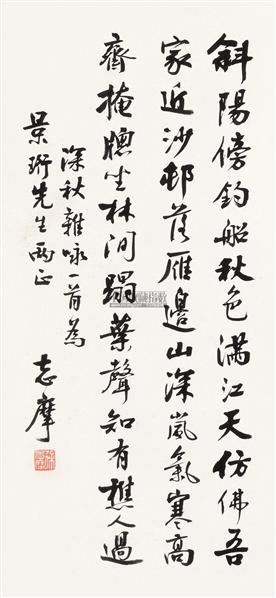 斜陽傍釣船秋色滿江天仿佛吾
家近沙邨落雁邊山深嵐氣寒高
齊掩牕坐林間蹋葉聲知有樵人過
深秋雜咏一首為
景珩先生兩正
志摩